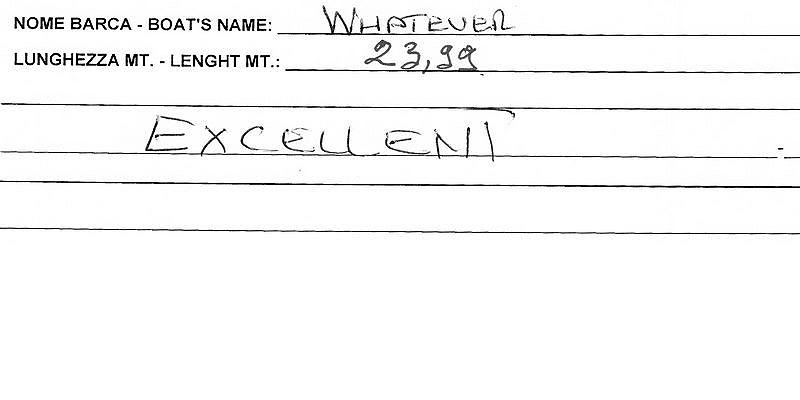 NOME BARCA - BOAT'S NAME: WHATEVER
LUNGHEZZA MT. - LENGHT MT.: 23,99
EXCELLENT